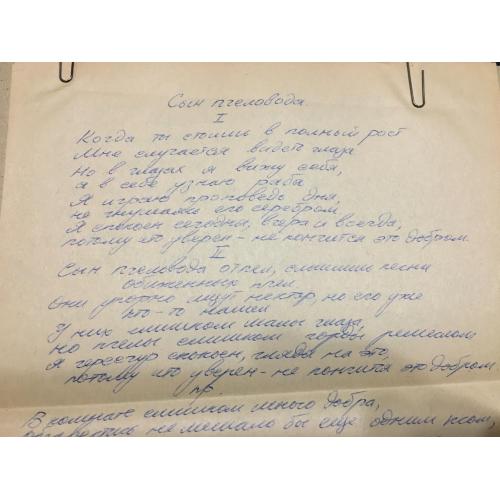 Сын пчеловода.
I
Когда ты стоишь в полный рост
Мне случается видеть глаза
Но в глазах я вижу себя,
а в себе узнаю раба
Я играю проповедь дня,
не гнушаясь его серебром
Я спокоен сегодня, вчера и всегда,
потому что уверен - не кончится это добром.
II
Сын пчеловода отпел, слышишь песни
обиженных пчел
Они упорно ищут нектар, но его уже
кто-то нашел
У них слишком малы глаза,
но пчелы слишком горды ремеслом
Я чересчур спокоен, глядя на это,
потому что уверен - не кончится это добром
пр.
В комнате слишком много добра,
не мешало бы еще одним ртом,